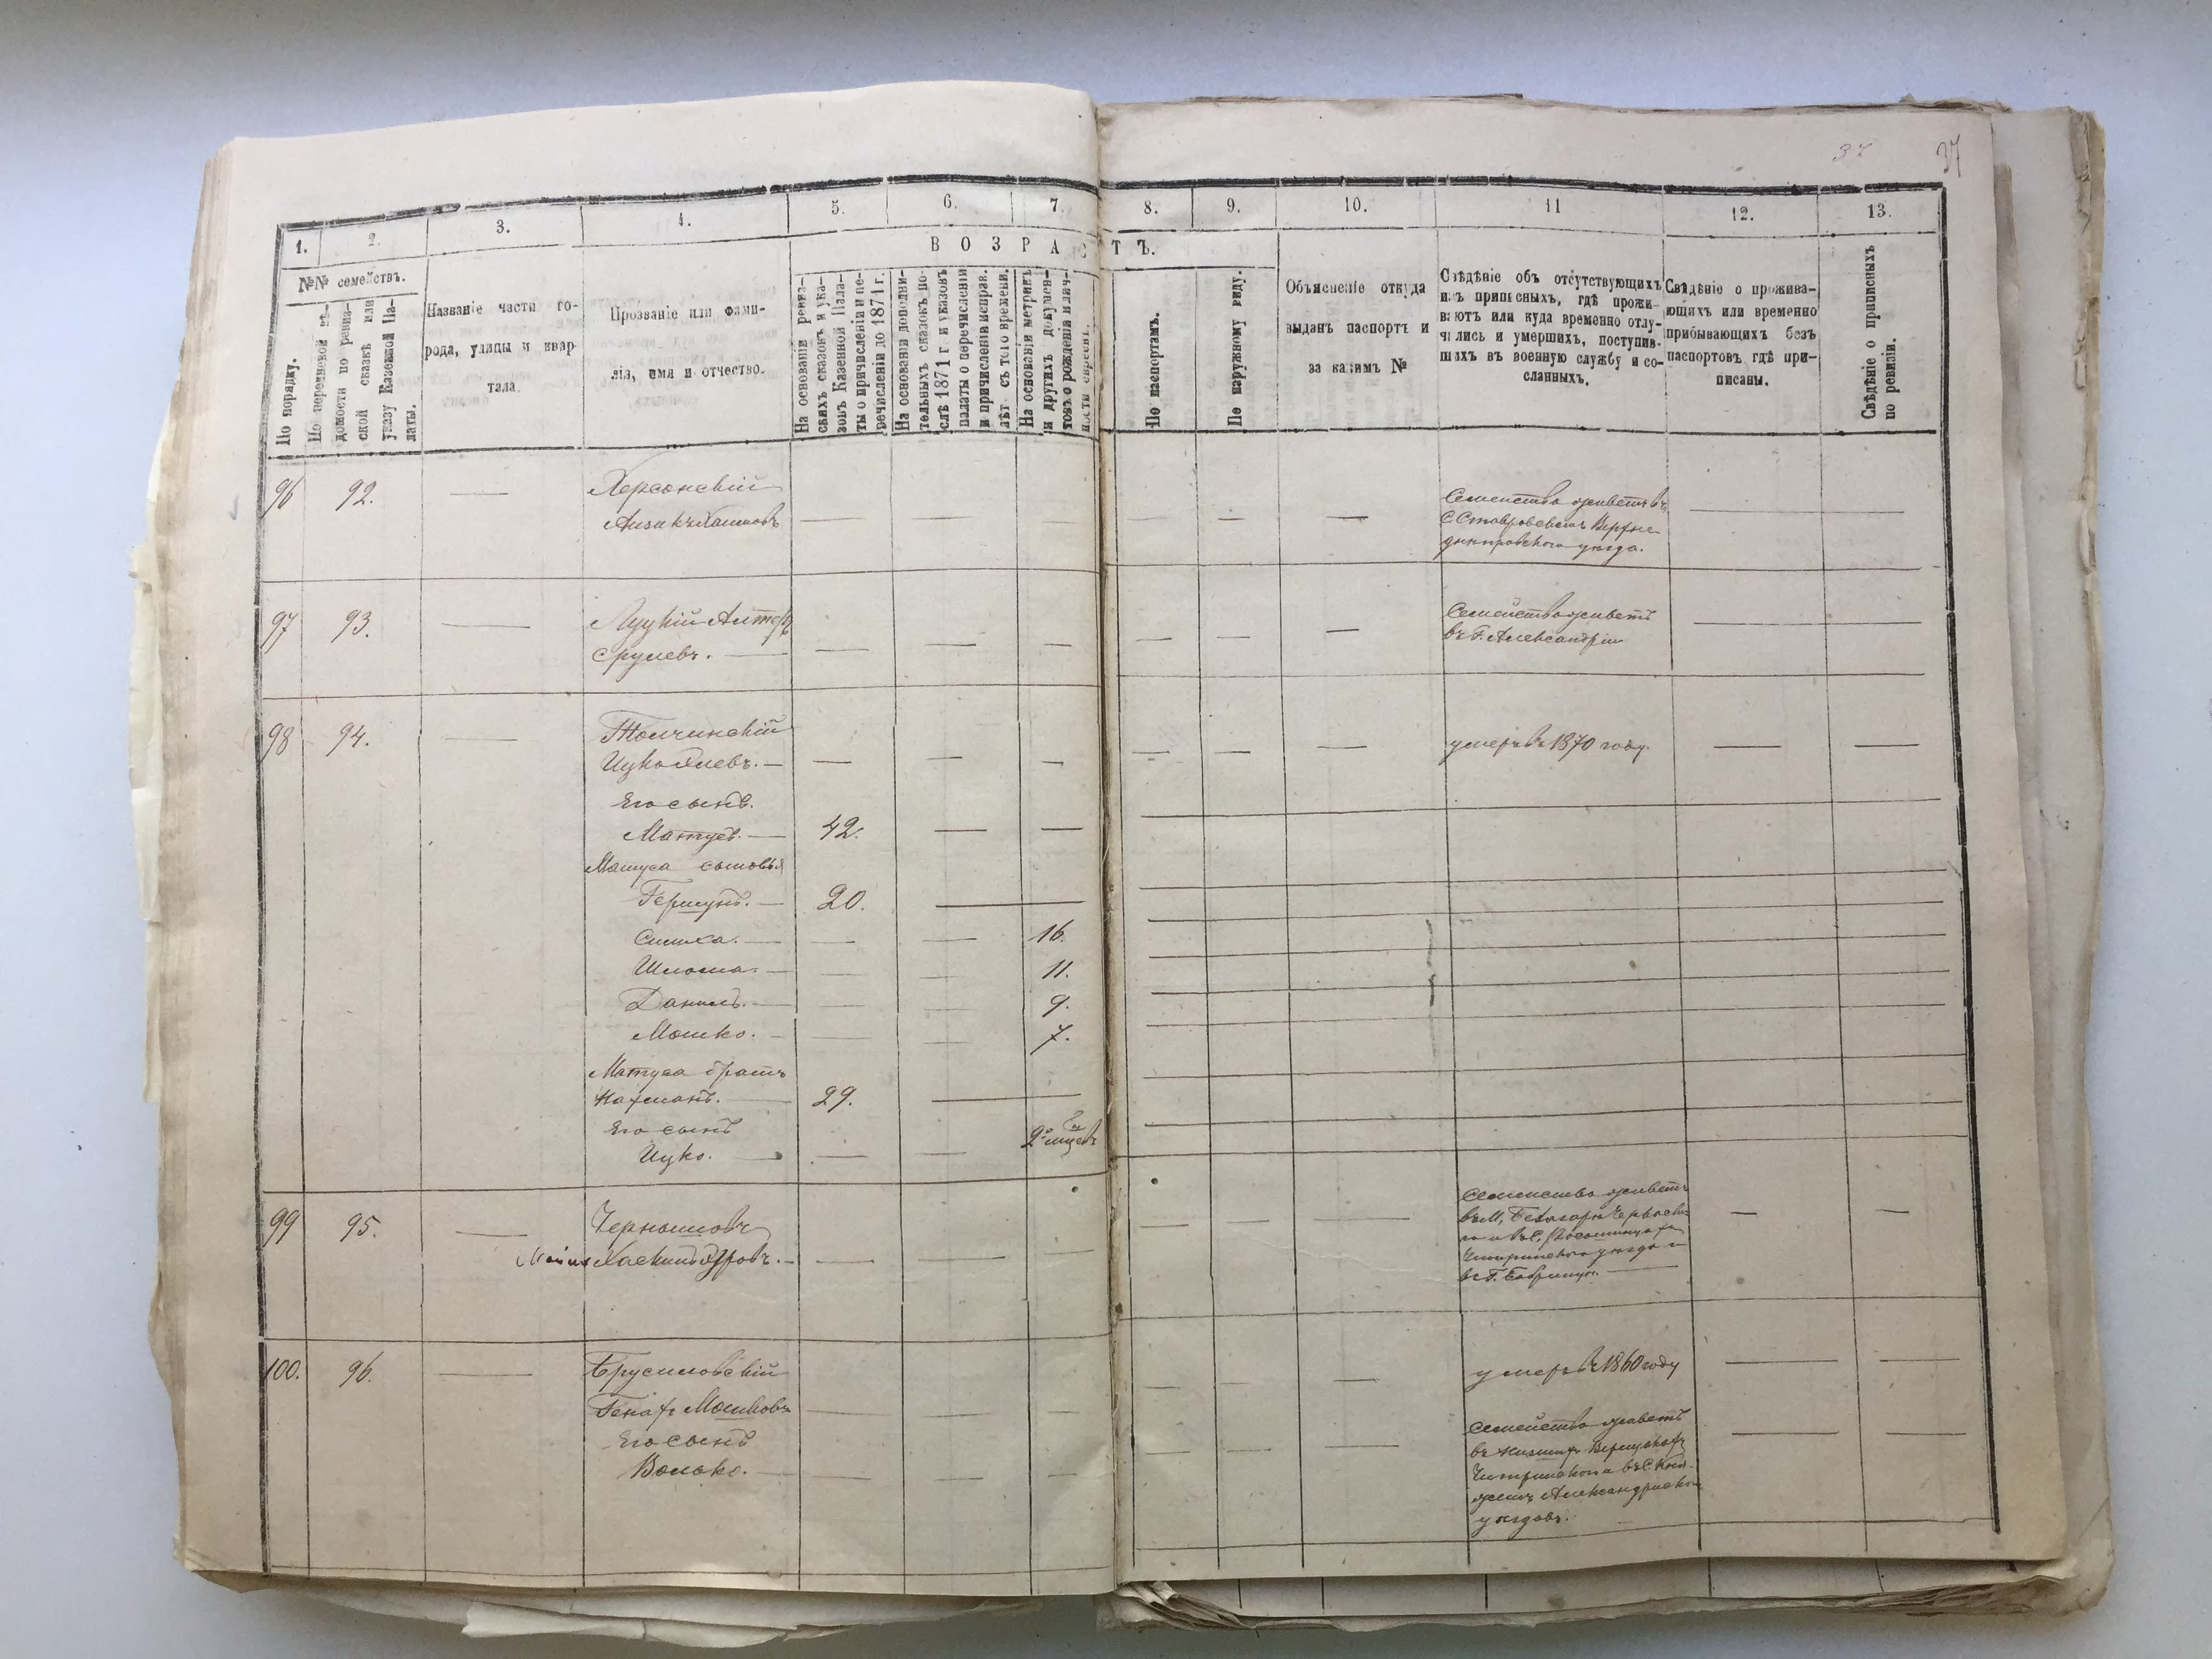 37 37
1. 2. 3. 4. 5. 6. 7. 8. 9. 10. 11 12. 13.
ВОЗРАСТЪ.
№№ семействъ.
По порядку.
По переписной вѣ-
домости по ревиз-
ской сказкѣ или
указу Казенной Па-
латы.
Названіе части го-
рода, улицы и квар-
тала
Прозваніе или фами-
лія, имя и отчество.
На основаніи ревиз-
скихъ сказокъ и ука-
зовъ Казенной Пала-
ты о причисленіи и пе-
речисленіи до 1871 г.
На основаніи дополни-
тельныхъ сказокъ по-
слѣ 1871 г. и указовъ
палаты о перечисленіи
и причисленіи исправ.
лѣт съ того времени.
На основаніи метрикъ
и другихъ докумен-
товъ о рожденіи и лич-
ности евреевъ.
По паспортамъ.
По наружному виду.
Объясненіе откуда
выданъ паспортъ и
за какимъ №
Свѣдѣніе объ отсутствующихъ
изъ приписныхъ, гдѣ прожи-
ваютъ или куда временно отлу-
чились и умершихъ, поступив-
шихъ въ военную службу и со-
сланныхъ.
Свѣдѣніе о прожива-
ющихъ или временно
прибывающихъ безъ
паспортовъ гдѣ при-
писаны.
Свѣдѣніе о приписныхъ
по ревизіи.
96 92. — Херсонскій
Аизикъ Хаимовъ — — — —
Семейство живетъ въ
С. Ставровскомъ Верхне
днѣпровскаго уѣзда.
97 93. — Луцкій Алтеръ
Срулевъ. — — — — — — —
Семейство живетъ
въ Г. Александріи
98 94. — Толчинскій
Ицко — — — — — — —
умеръ въ 1870 году. — —
Его сынъ.
Матусъ. — 42. — —
Матуса сыновья
Гершунъ. — 20. —
Симха. — — — 16.
Шлома. — — — 11.
Данилъ. — — — 9.
Мошко. — — — 7.
Матуса братъ
Нахманъ. — 29. —
Его сынъ
Ицко. — — —
99 95. — Чернышовъ
Хаскилъ — — — — — — — —
Семейство живетъ
Чигринскаго уѣзда и
въ Г. Бобринцѣ. —
100. 96. — Брусиловскій
Генахъ Мошковъ — — — — — — —
умеръ въ 1860 году
Его сынъ
Волько. — — — — — — — —
Семейство живетъ
Александрійскаго
уѣздовъ.